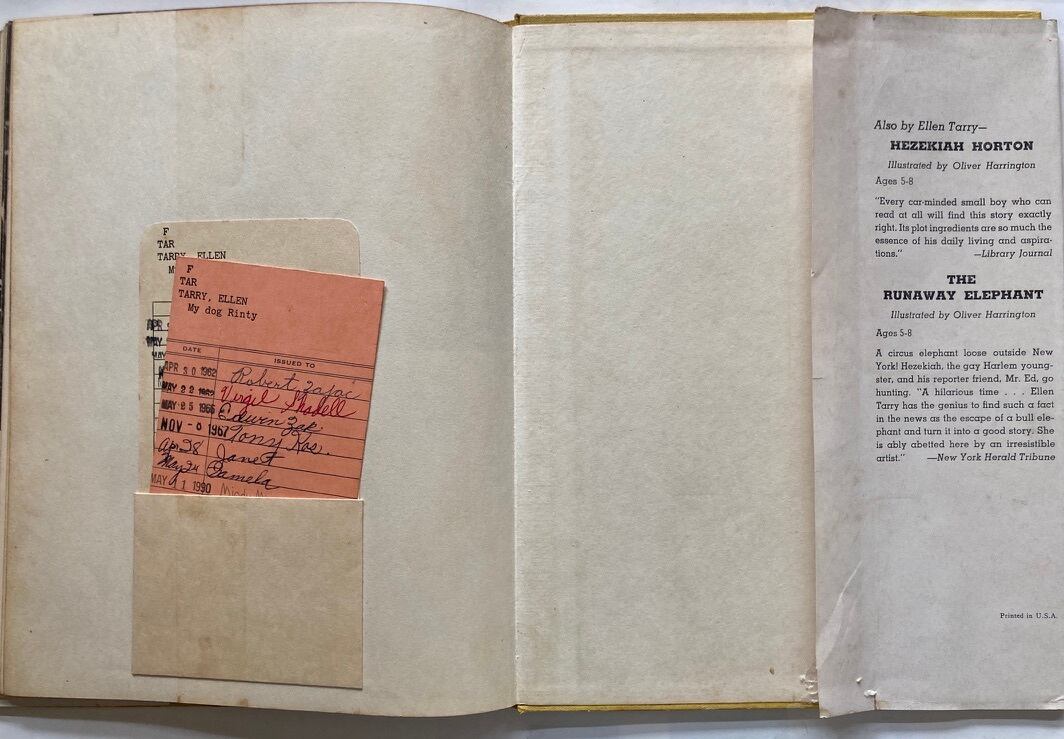 F
TAR
TARRY, ELLEN
M
APR
MAY
MAY
F
TAR
TARRY, ELLEN
My dog Rinty
DATE ISSUED TO
APR 30 1962 Robert Zajac
MAY 22 1962 Virgil
MAY 25 1966 Edwin Zak.
NOV - 1967 Tony Kos.
Apr 28 Janet
May 24 Pamela
MAY 1 1990
Also by Ellen Tarry—
HEZEKIAH HORTON
Illustrated by Oliver Harrington
Ages 5-8
"Every car-minded small boy who can
read at all will find this story exactly
right. Its plot ingredients are so much the
essence of his daily living and aspira-
tions." —Library Journal
THE
RUNAWAY ELEPHANT
Illustrated by Oliver Harrington
Ages 5-8
A circus elephant loose outside New
York! Hezekiah, the gay Harlem young-
ster, and his reporter friend, Mr. Ed, go
hunting. "A hilarious time . . . Ellen
Tarry has the genius to find such a fact
in the news as the escape of a bull ele-
phant and turn it into a good story. She
is ably abetted here by an irresistible
artist." —New York Herald Tribune
Printed in U.S.A.